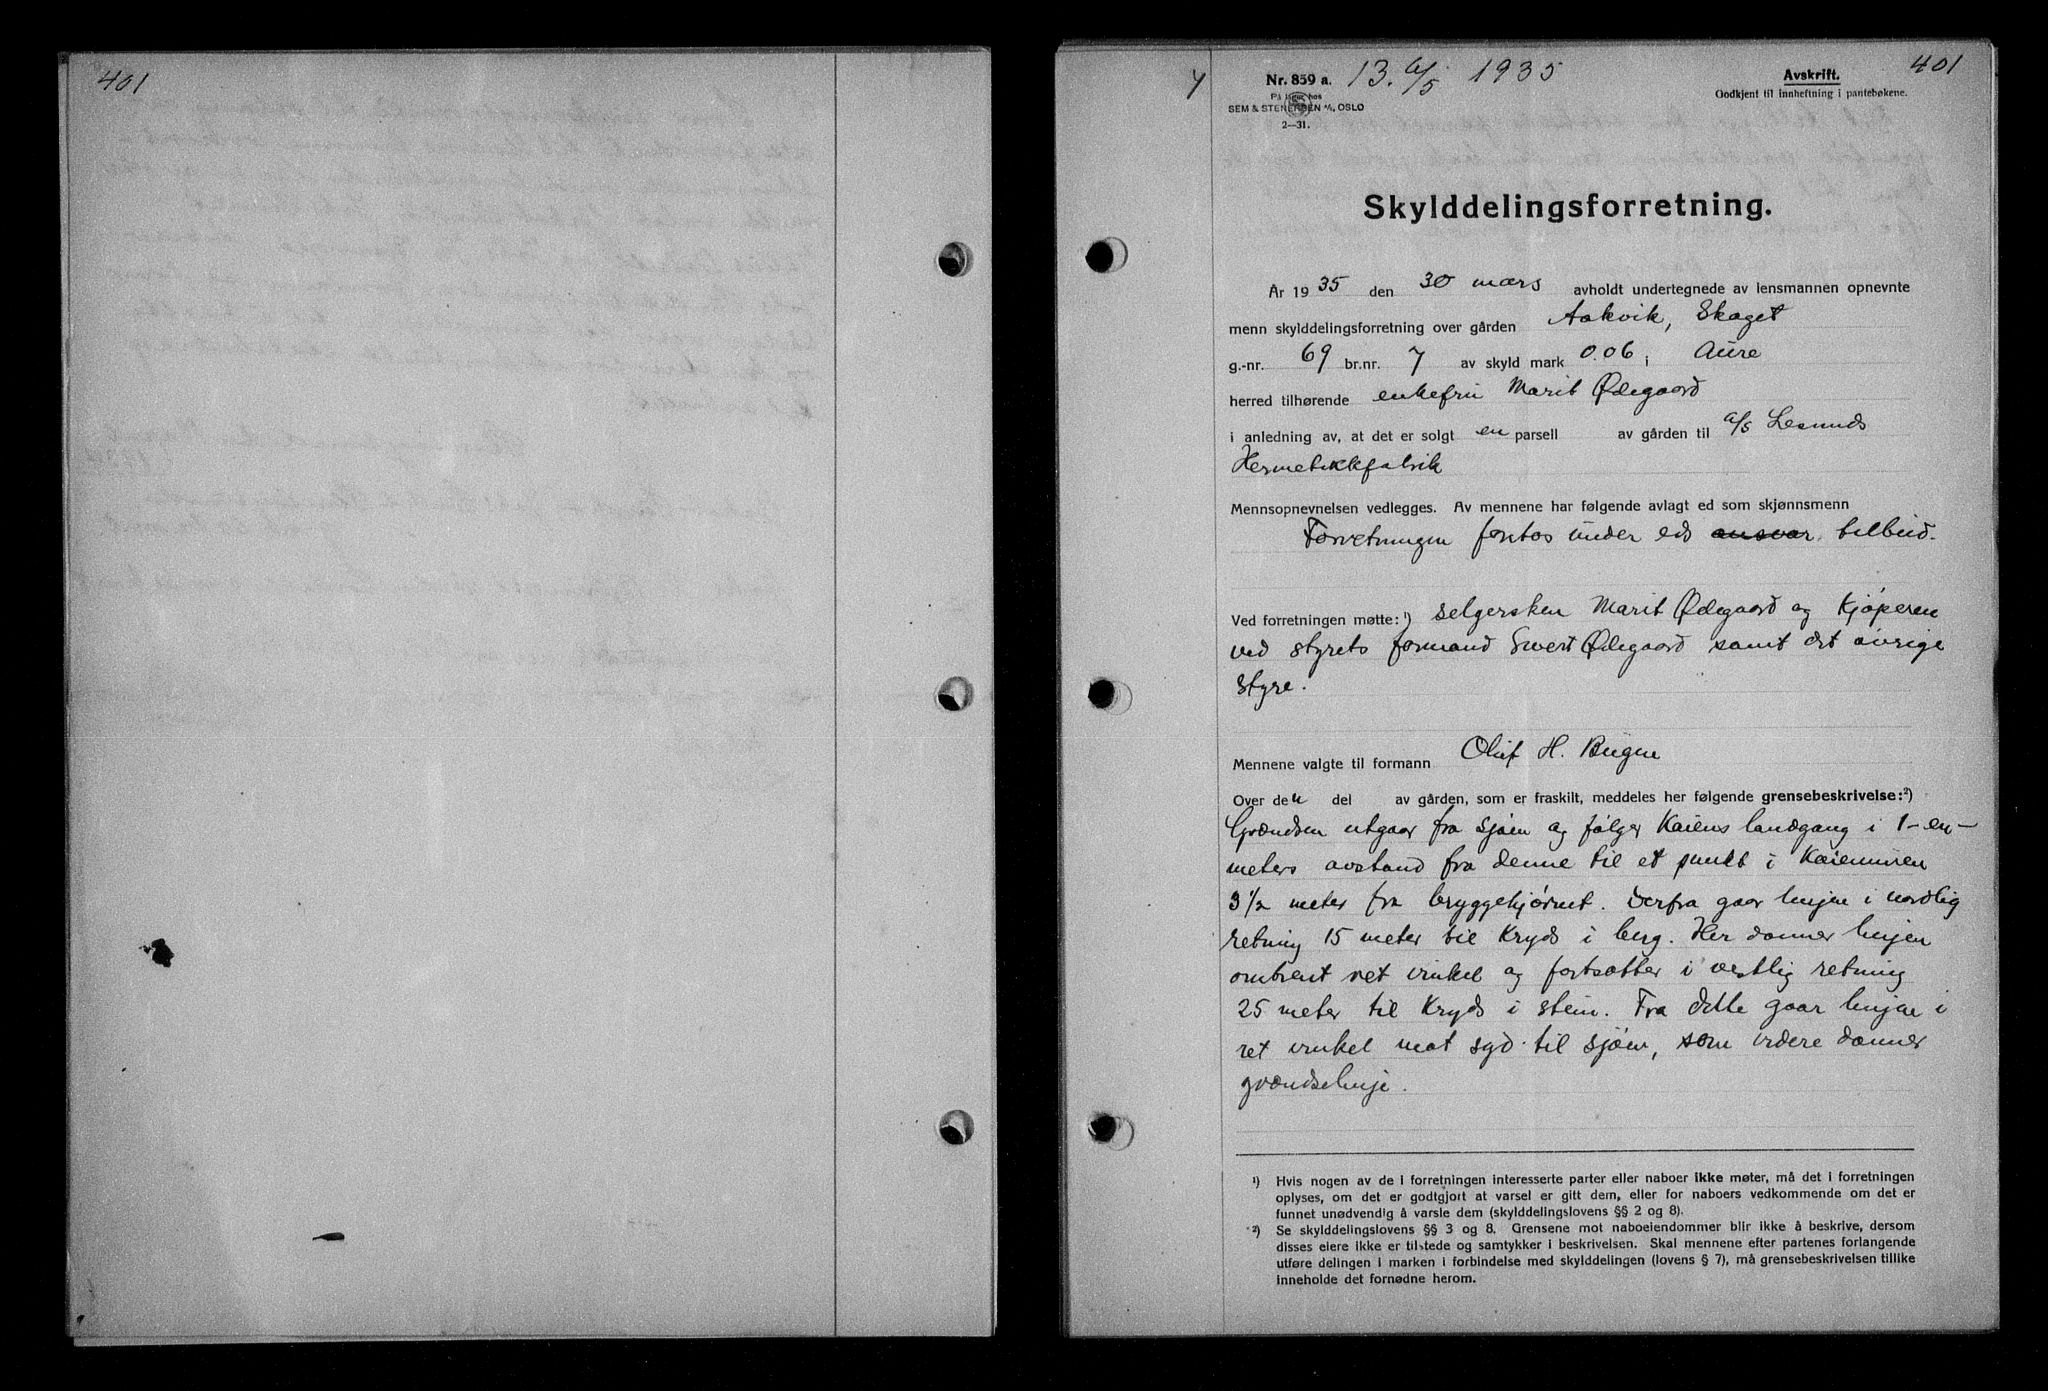 401
401
Nr. 859 a. 13 6/5 1935
Avskrift.
På lager hos
Godkjent til innheftning i pantebøkene.
SEM & STENERSEN A/S, OSLO
2—31.
Skylddelingsforretning.
År 1935 den 30 mars avholdt undertegnede av lensmannen opnevnte
menn skylddelingsforretning over gården Aakvik, Skaget
g.-nr. 69 br.nr. 7 av skyld mark 0.06 i Aure
herred tilhørende enkefru Marit Ødegaard
i anledning av, at det er solgt en parsell av gården til a/s Lesunds
Hermetikkfabrik
Mennsopnevnelsen vedlegges. Av mennene har følgende avlagt ed som skjønnsmenn
Forretningen foretas under eds ansvar tilbud.
Ved forretningen møtte: ¹) selgersken Marit Ødegaard og Kjøperen
ved styrets formand Sivert Ødegaard samt det øvrige
styre.
Mennene valgte til formann Oluf H. Bugne
Over den del av gården, som er fraskilt, meddeles her følgende grensebeskrivelse: ²)
Grændsen utgaar fra sjøen og følger Kaiens landgang i 1-en-
meters avstand fra denne til et punkt i Kaiemuren
3½ meter fra bryggehjørnet. Derfra gaar linjen i nordlig
retning 15 meter til Kryds i berg. Her danner linjen
omtrent ret vinkel og fortsætter i vestlig retning
25 meter til Kryds i stein. Fra dette gaar linjen i
ret vinkel mot syd til sjøen, som videre danner
grændselinje.
¹) Hvis nogen av de i forretningen interesserte parter eller naboer ikke møter, må det i forretningen
oplyses, om det er godtgjort at varsel er gitt dem, eller for naboers vedkommende om det er
funnet unødvendig å varsle dem (skylddelingslovens §§ 2 og 8).
²) Se skylddelingslovens §§ 3 og 8. Grensene mot naboeiendommer blir ikke å beskrive, dersom
disses eiere ikke er tilstede og samtykker i beskrivelsen. Skal mennene efter partenes forlangende
utføre delingen i marken i forbindelse med skylddelingen (lovens § 7), må grensebeskrivelsen tillike
inneholde det fornødne herom.